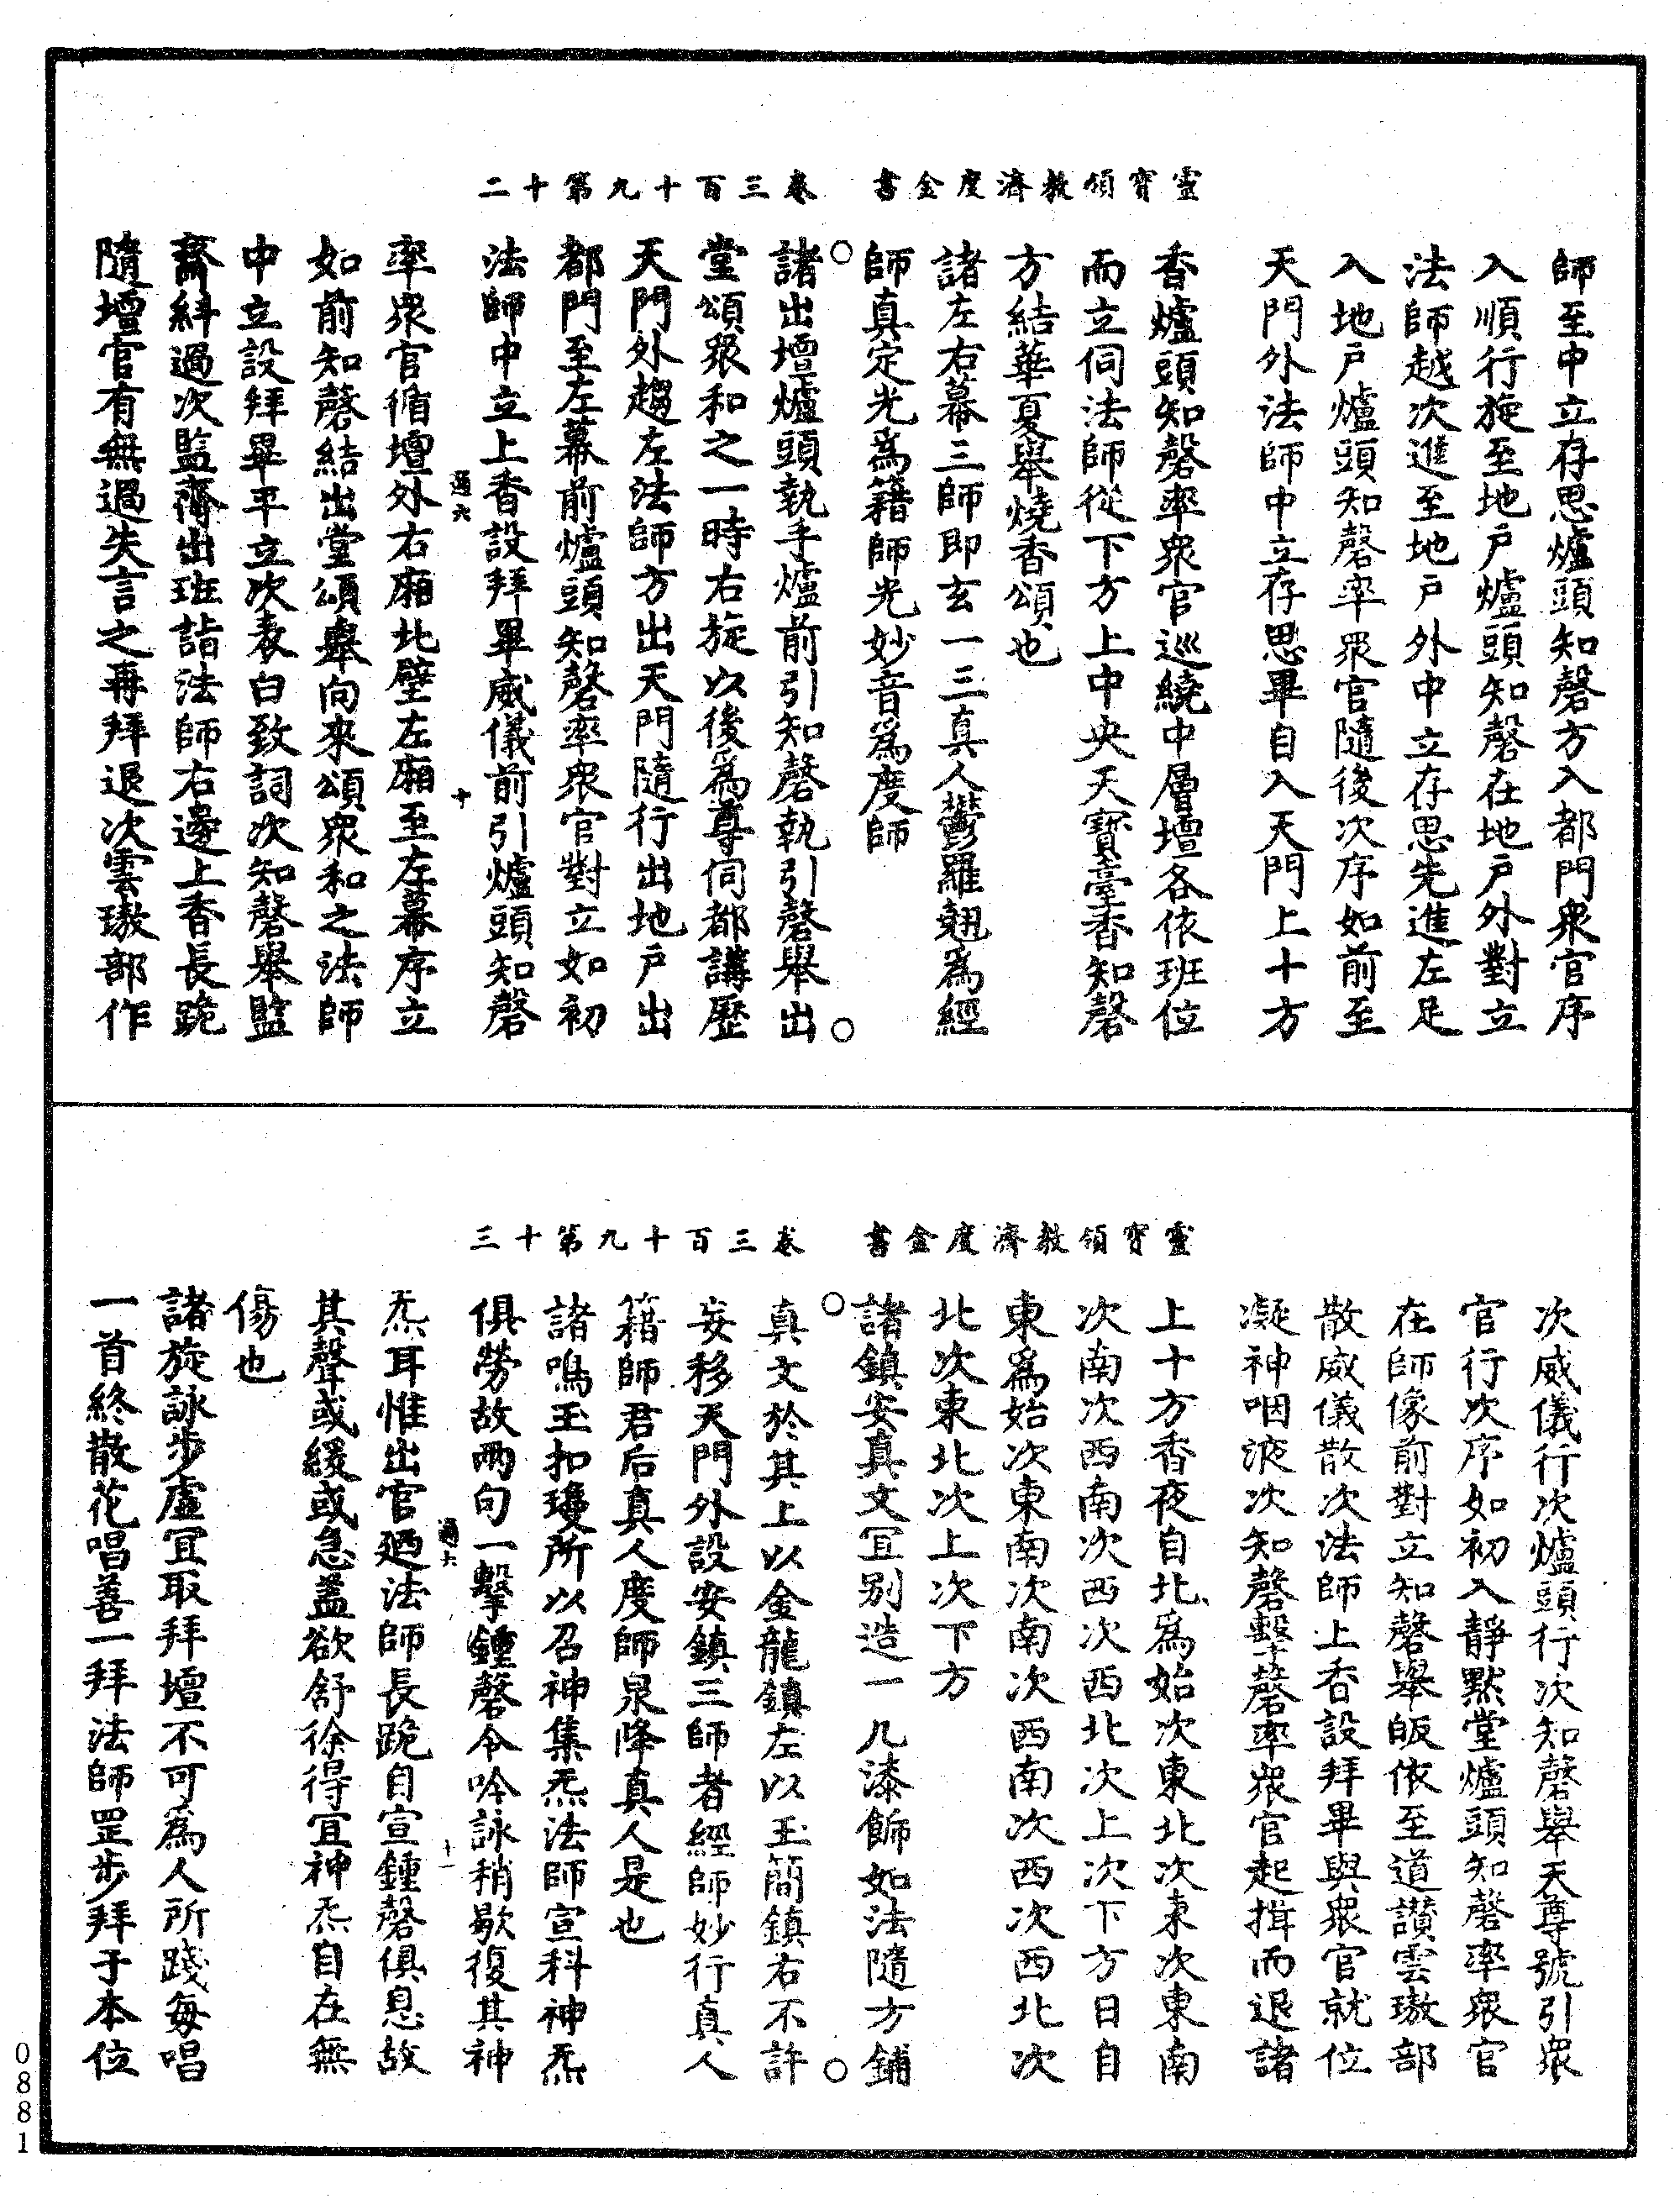 師至中立存思爐頭知磬方入都門衆官序
入順行旋至地戶爐頭知磬在地戶外對立
法師越次進至地戶外中立存思先進左足
入地戶爐頭知磬率衆官隨後次序如前至
天門外法師中立存思畢自入天門上十方
香爐頭知磬率衆官巡繞中層壇各依班位
而立伺法師從下方上中央天寶臺香知磬
方結華夏舉燒香頌也
諸左右幕三師即玄一三真人鬱羅翹爲經
師真定光爲籍師光妙音爲度師
靈寶領教濟度金書 卷三百十九第十二
諸出壇爐頭執手爐前引知磬執引磬舉出
堂頌衆和之一時右旋以後爲尊伺都講歷
天門外趨左法師方出天門隨行出地戶出
都門至左幕前爐頭知磬率衆官對立如初
法師中立上香設拜畢威儀前引爐頭知磬
通六 十
率衆官循壇外右廂北壁左廂至左幕序立
如前知磬結出堂頌舉向來頌衆和之法師
中立設拜畢平立次表白致詞次知磬舉監
齋糾過次監齋出班詣法師右邊上香長跪
隨壇官有無過失言之再拜退次雲璈部作
次威儀行次爐頭行次知磬舉天尊號引衆
官行次序如初入靜默堂爐頭知磬率衆官
在師像前對立知磬舉皈依至道讚雲璈部
散威儀散次法師上香設拜畢與衆官就位
凝神咽液次知磬擊磬率衆官起揖而退諸
上十方香夜自北爲始次東北次東次東南
次南次西南次西次西北次上次下方日自
東爲始次東南次南次西南次西次西北次
北次東北次上次下方
諸鎮安真文宜別造一几漆飾如法隨方鋪
靈寶領教濟度金書 卷三百十九第十三
真文於其上以金龍鎮左以玉簡鎮右不許
妄移天門外設安鎮三師者經師妙行真人
籍師君后真人度師泉降真人是也
諸鳴玉扣瓊所以召神集炁法師宣科神炁
俱勞故兩句一擊鍾磬令吟詠稍歇復其神
通六 十一
炁耳惟出官廼法師長跪自宣鍾磬俱息故
其聲或緩或急蓋欲舒徐得宜神炁自在無
傷也
諸旋詠步虛宜取拜壇不可為人所踐每唱
一首終散花唱善一拜法師罡步拜于本位
0881